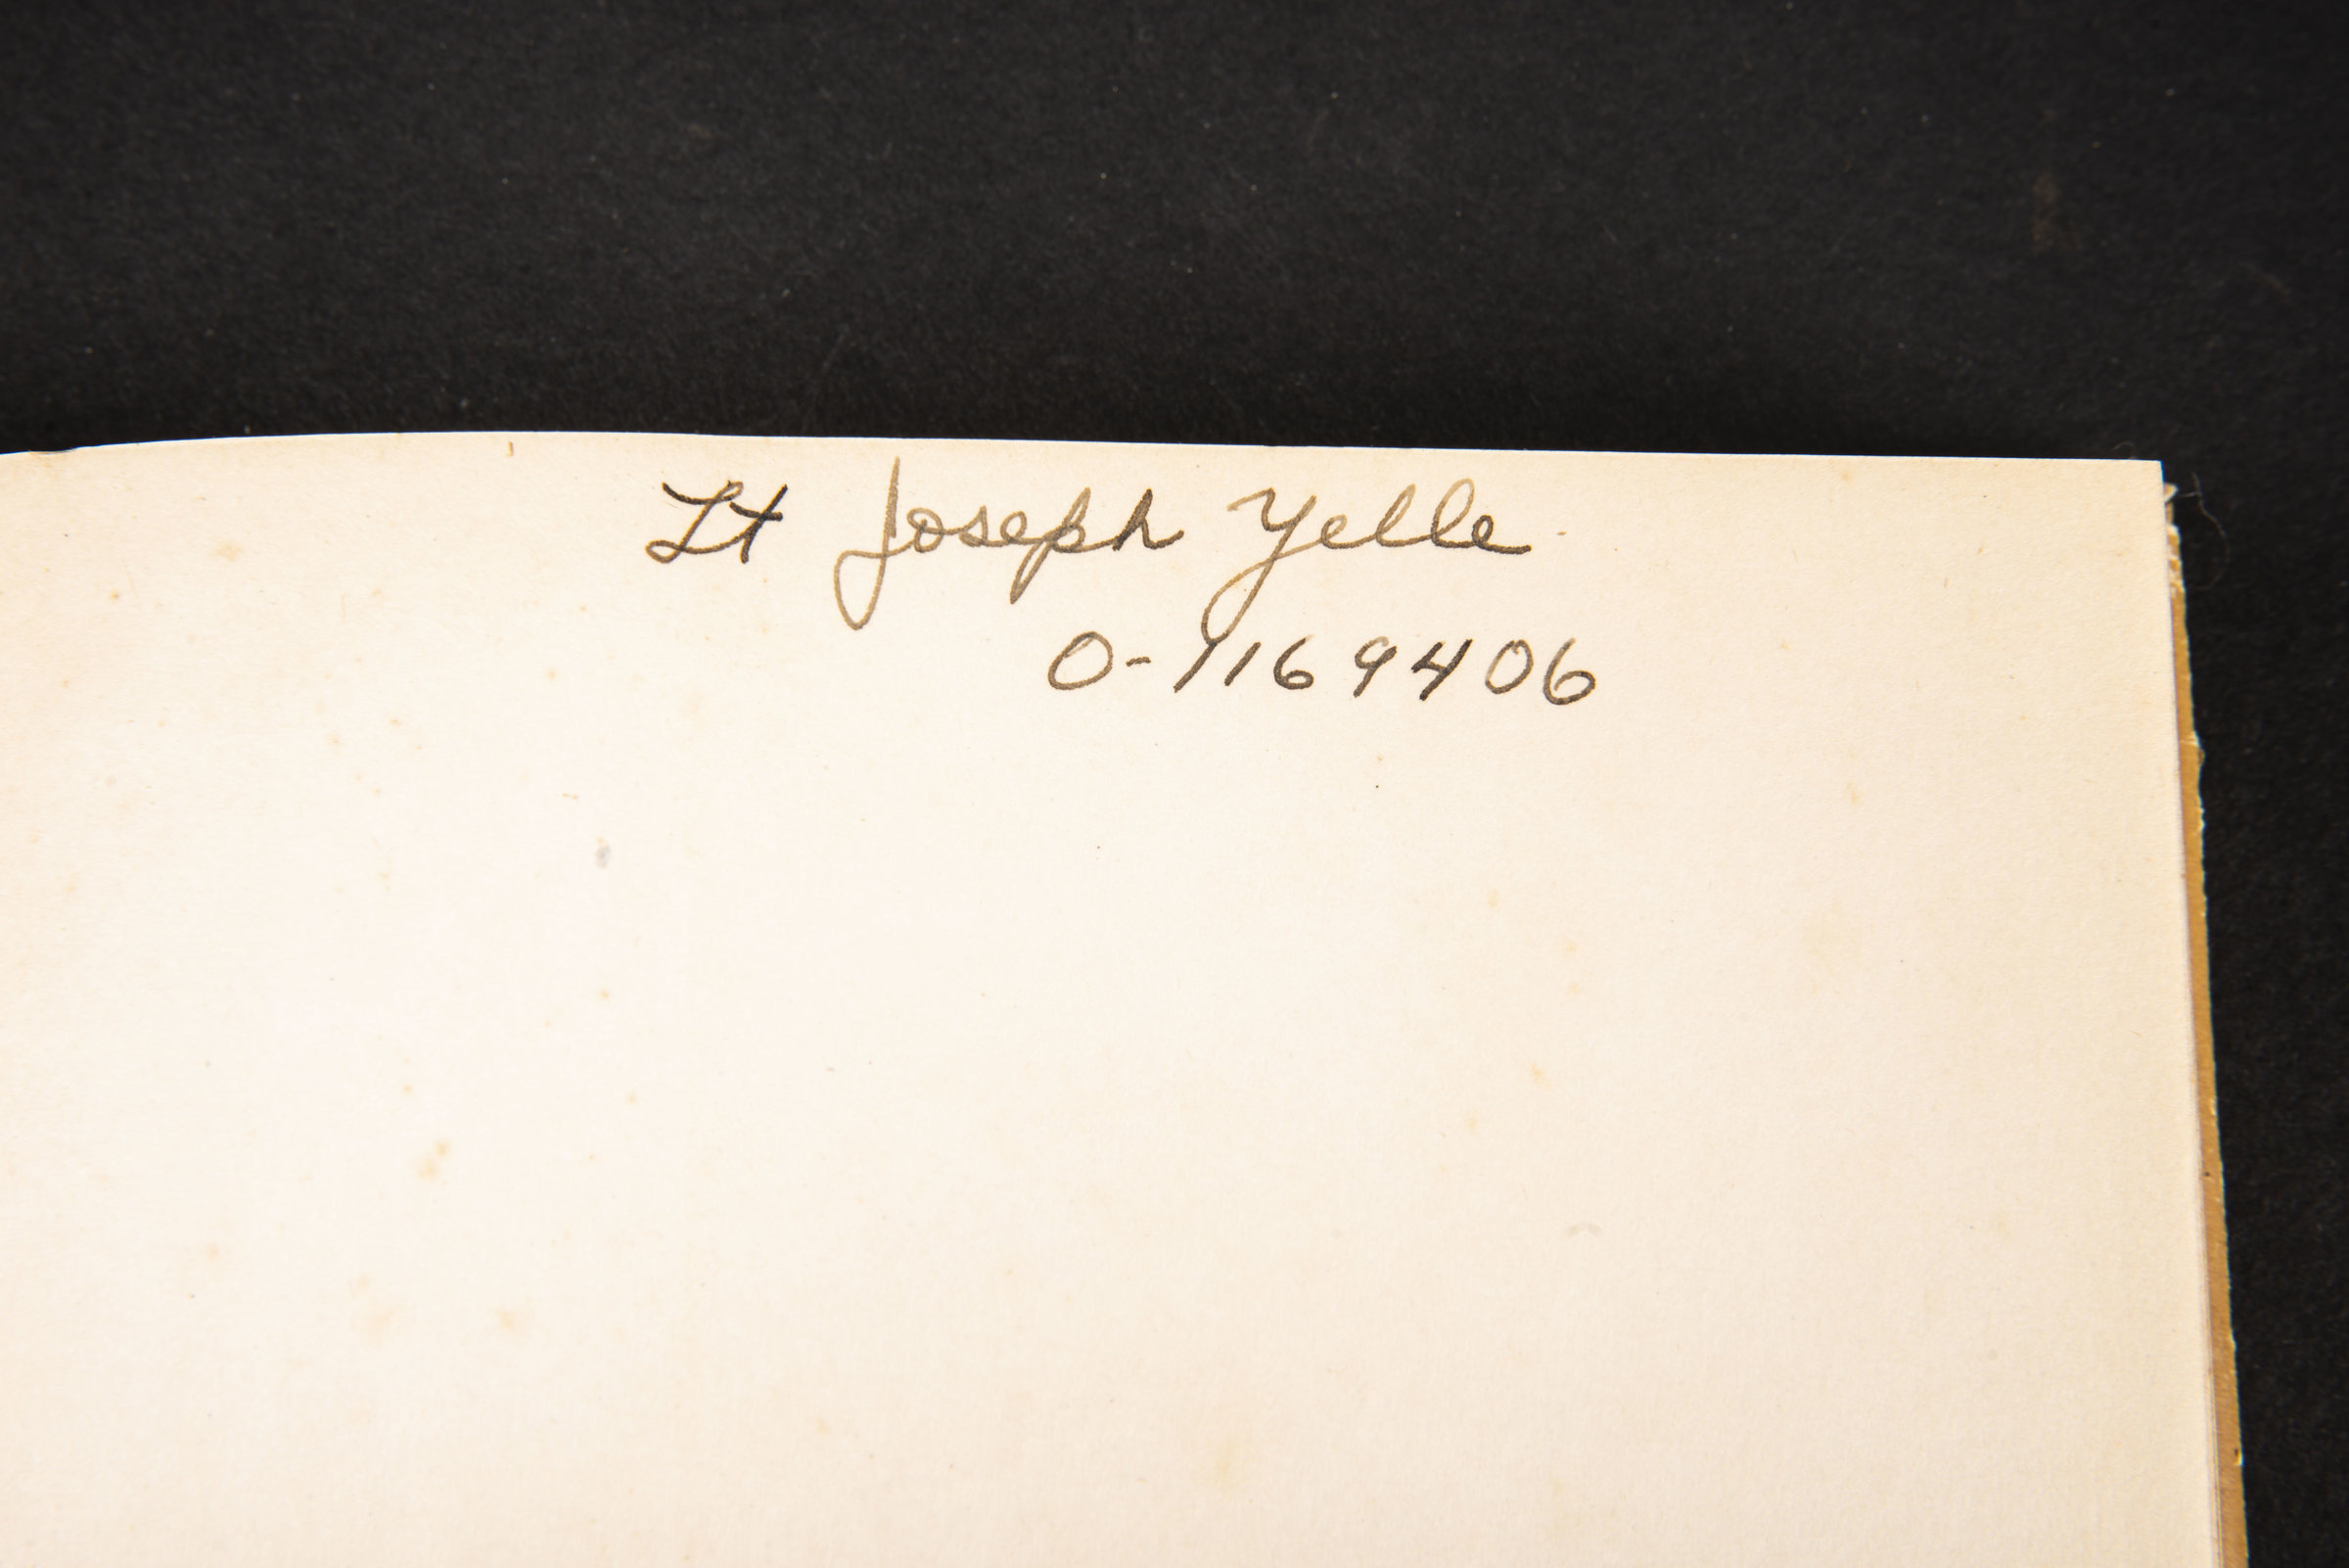 Lt Joseph Yelle
O-1169406